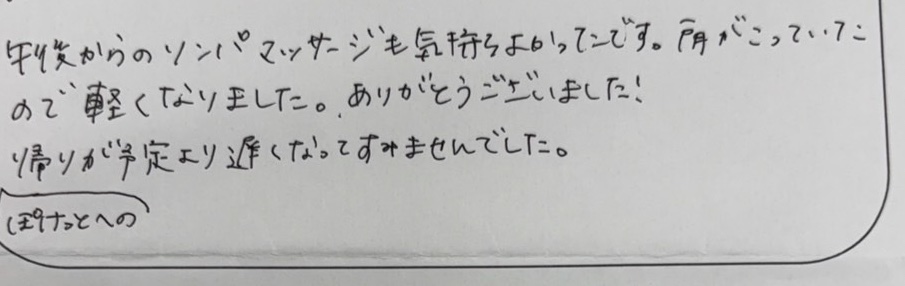 午後からのリンパマッサージも気持ちよかったです。肩がこっていた
ので軽くなりました。ありがとうございました!
帰りが予定より遅くなってすみませんでした。
ぽけっとへの